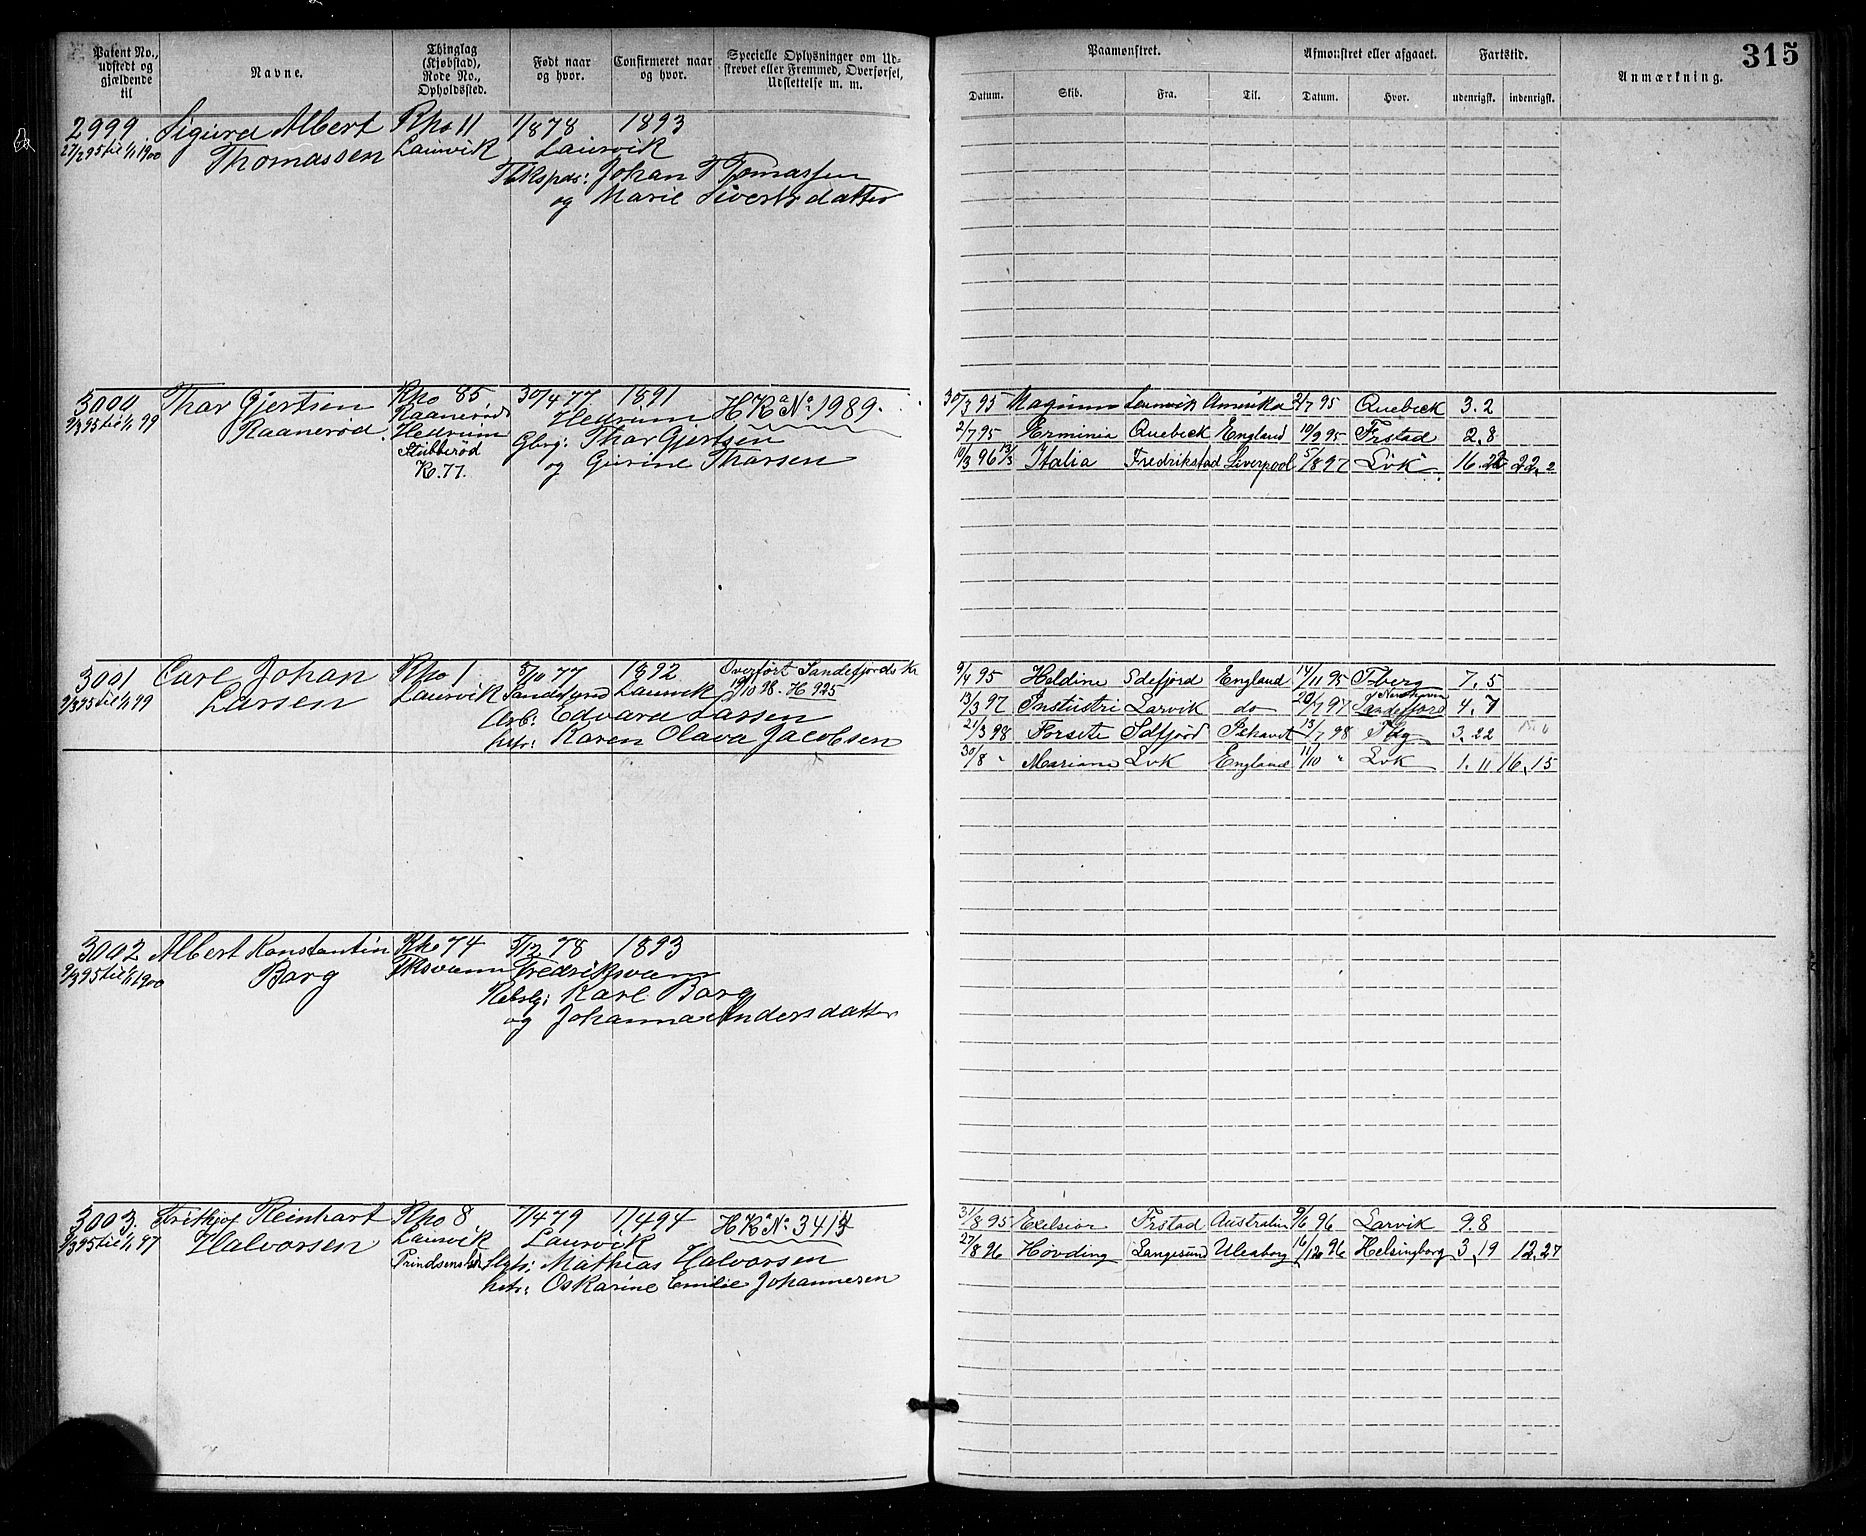 315
Patent No., udstedt og gjældende til
Navne.
Thinglag (Kjøbstad), Rode No., Opholdssted.
Født naar og hvor.
Confirmeret naar og hvor.
Specielle Oplysninger om Udskrevet eller Fremmed, Overførsel, Udslettelse m. m.
Paamønstret.
Afmønstret eller afgaaet.
Fartstid.
Anmærkning.
Datum. Skib. Fra. Til. Datum. Hvor. udenrigsk. indenrigsk.
2999. Sigurd Albert Rho 11 1/8 78 1893
27/2 95 til 1/1 1900 Thomassen Laurvik Laurvik
Johan Thomassen
og Marie Sivertsdatter
3000 Thor Gjertsen Rho 85 30/4 77 1891 HKa No 1989.
9/3 95 til 1/1 99 Raanerød. Raanerød Hedrum
Hedrum Gbrg: Thor Gjertsen
Stubberød og Gurine Thorsen
Ro. 77.
30/3 95 Magnus Laurvik Amerika 2/7 95 Quebeck 3. 2
2/7 95 Erminia Quebeck England 10/9 95 Frstad 2. 8
10/3 96 13/3 Italia Fredrikstad Liverpool 5/8 97 Lvk 16. 22, 2
3001 Carl Johan Rho 1 8/10 77 1892 Overført Sandefjords Kr
9/3 95 til 1/1 99 Larsen Laurvik Sandefjord Laurvik 19/10 98 - H 925
Arb: Edvard Larsen
hstr: Karen Olava Jacobsen
9/4 95 Haldine Sdefjord England 14/11 95 Tberg 7. 5
13/3 97 Industri Larvik do 20/7 97 Sandefjord 4. 7
21/3 98 Forsete Sdfjord 13/7 98 Tbg 3. 22
30/8 " Mariane Lvk England 11/10 " Lvk 1. 11 16, 15
3002 Albert Konstantin Rho 74 5/12 78 1893
9/3 95 til 1/1 1900 Borg Fksværn Fredriksværn
Karl Borg
og Johanna Andersdatter
3003. Frithjof Reinhart Rho 8 1/4 79 1/4 94 HKa No. 3414
9/3 95 til 1/1 97 Halvorsen Laurvik Laurvik
Mathias Halvorsen
hstr: Oskarine Emilie Johannesen
31/8 95 Exelsior Frstad Australien 9/6 96 Larvik 9. 8
27/8 96 Høvding Langesund Uleaborg 16/12 96 Helsingborg 3, 19 12, 27